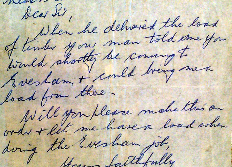 Dear Sir,
When he delivered the load
of timber your man told me you
would shortly be coming to
Evesham & could bring me a
load from there.
Will you please make this an
order & let me have a load when
doing the Evesham job,
Yours faithfully